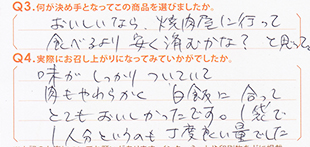 Q3.何が決め手となってこの商品を選びましたか。
おいしいなら、焼肉屋に行って
食べるより安く済むかな？と思って。
Q4.実際にお召し上がりになってみていかがでしたか。
味がしっかりついていて
肉もやわらかく 白飯に合って
とてもおいしかったです。1袋で
1人分というのも丁度良い量でした